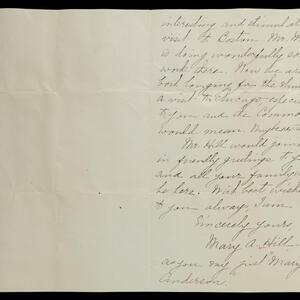 interesting and stimulat
visit to Boston Mr. M
is doing wonderfully so
work there. Now we are
both longing for the
a visit to Chicago espec
to you and the Commo
would mean.
Mr. Hill would join
in friendly greetings to y
and all your family
here. With best wishe
to you always, I am
Sincerely yours,
Mary A. Hill
as you may just "Mary
Anderson.